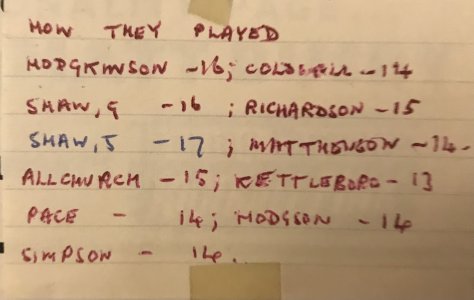 HOW THEY PLAYED
HODGKINSON -16; COLDWELL - 14
SHAW, G -16 ; RICHARDSON - 15
SHAW, J -17 ; MATTHEWSON -14-
ALLCHURCH -15; KETTLEBORO - 13
PACE - 14; HODGSON - 14
SIMPSON - 14.